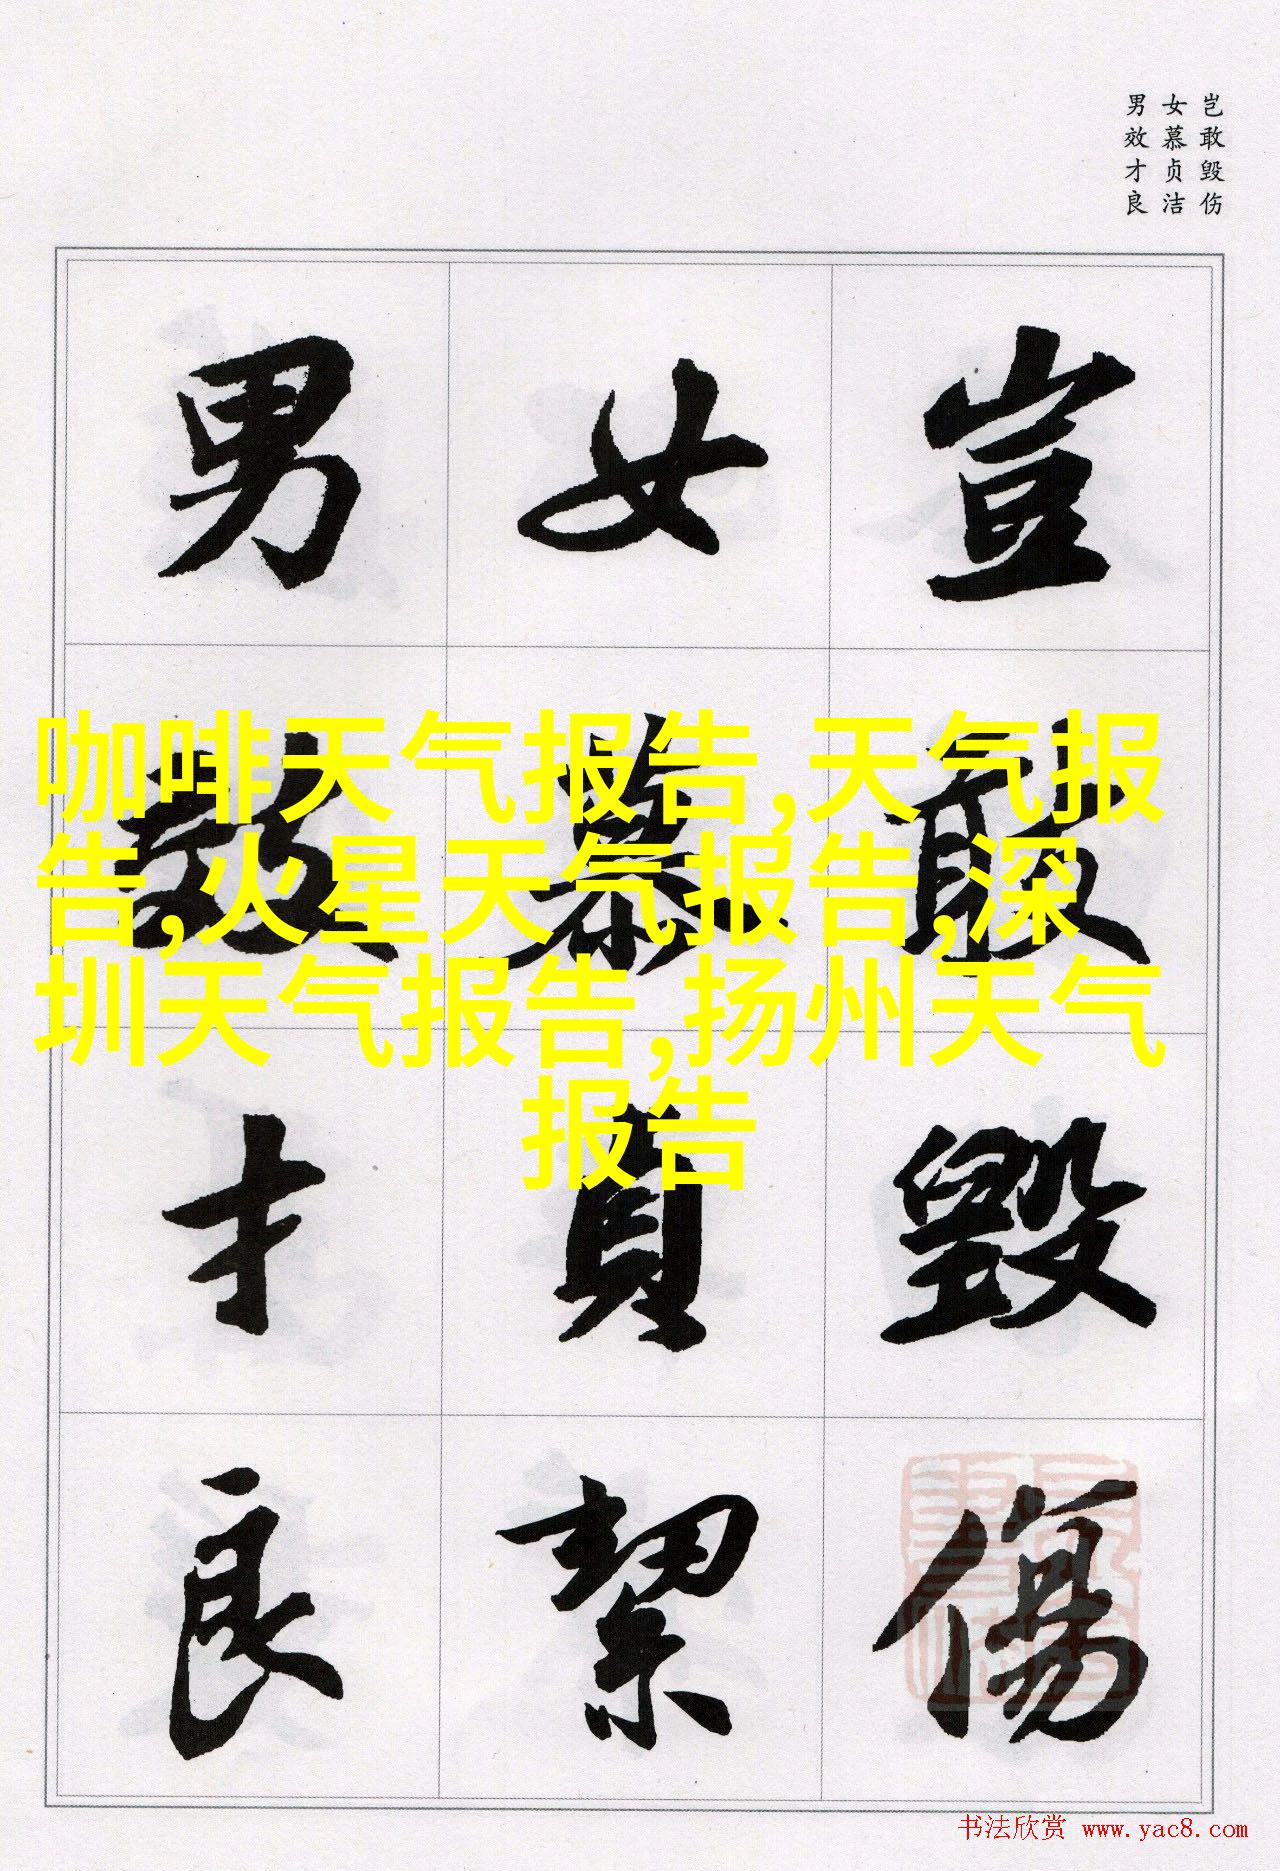 岂敢毁伤
女慕贞洁
男效才良
豈敢毀傷
女慕貞絜
男效才良
咖啡天气报告,天气报
告,火星天气报告,深
圳天气报告,扬州天气
报告
书法欣赏 www.yac8.com